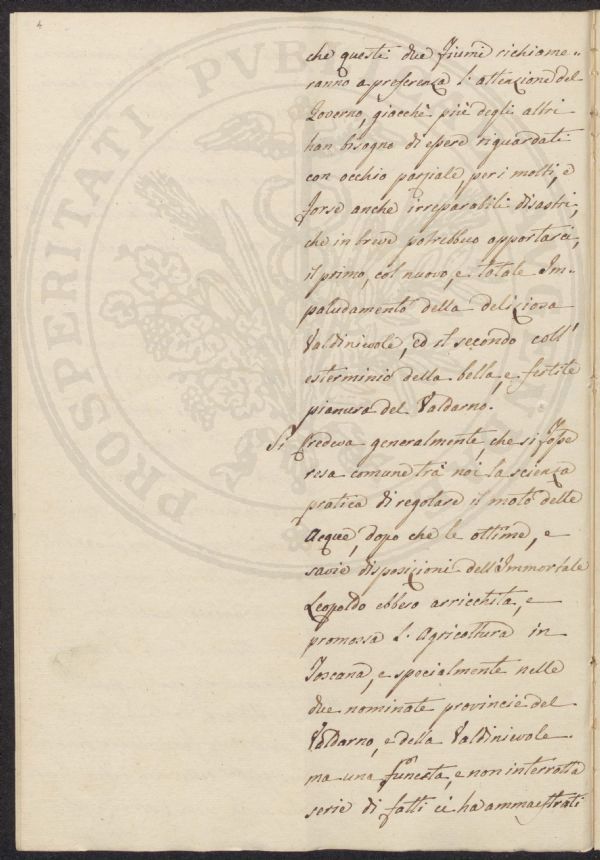 4
che questi due Fiumi richiame=
ranno a preferenza l'attenzione del
Governo, giacchè più degli altri
han bisogno di essere riguardati
con occhio parziale per i molti, e
forse anche irreparabili disastri,
che in breve potrebbero apportarci,
il primo, col nuovo, e totale Im-
paludamento della deliziosa
Valdinievole, ed il secondo coll'
esterminio della bella, e fertile
pianura del Valdarno.
Si credeva generalmente, che si fosse
resa comune trà noi la scienza
pratica di regolare il moto delle
Acque, dopo che le ottime, e
savie disposizioni dell'Immortale
Leopoldo ebbero arricchita, e
promossa l'Agricoltura in
Toscana, e specialmente nelle
due nominate provincie del
Valdarno, e della Valdinievole
ma una funesta, e non interrotta
serie di fatti ci ha ammaestrati
PROSPERITATI PVB